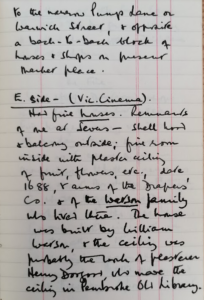 to the narrow Pump Lane or
Warwick Street, & opposite
a back-to-back block of
houses & shops on present
market place.
E. side- (Vic. Cinema).
Had five houses. Remnants
of one at Sevens - shell hood
& balcony outside; fine room
inside with plaster ceiling
of fruit, flowers, etc., date
1688, & arms of the Drapers
Co. & of the Werson family
who lived there. The house
was built by William
Werson, & the ceiling was
probably the work of plasterer
Henry Doogood, who made the
ceiling in Pembroke Old Library.